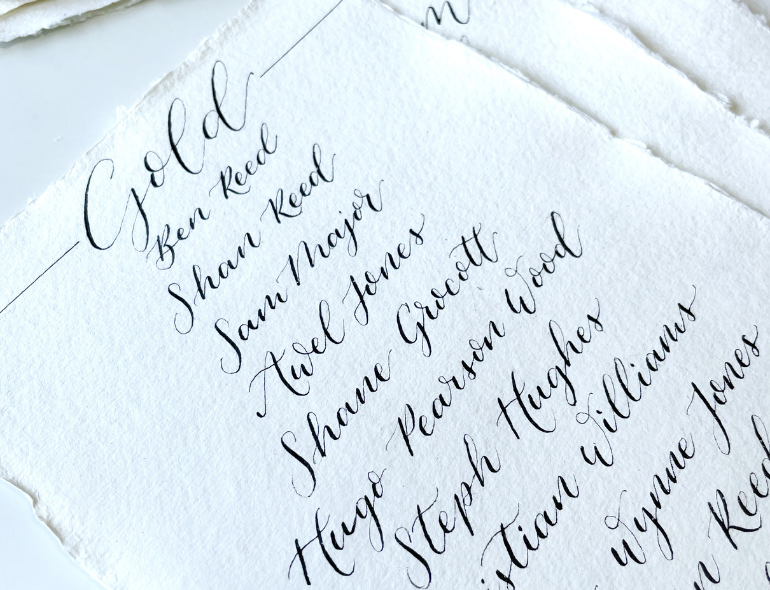 Gold
Ben Reed
Shan Reed
Sam Major
Awel Jones
Shane Grocott
Hugo Pearson Wood
Steph Hughes
istian Williams
Wynne Jones
n Reed